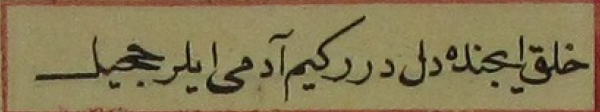 خلق ایچنده دل در رکیم آدمی ایلر جحیل